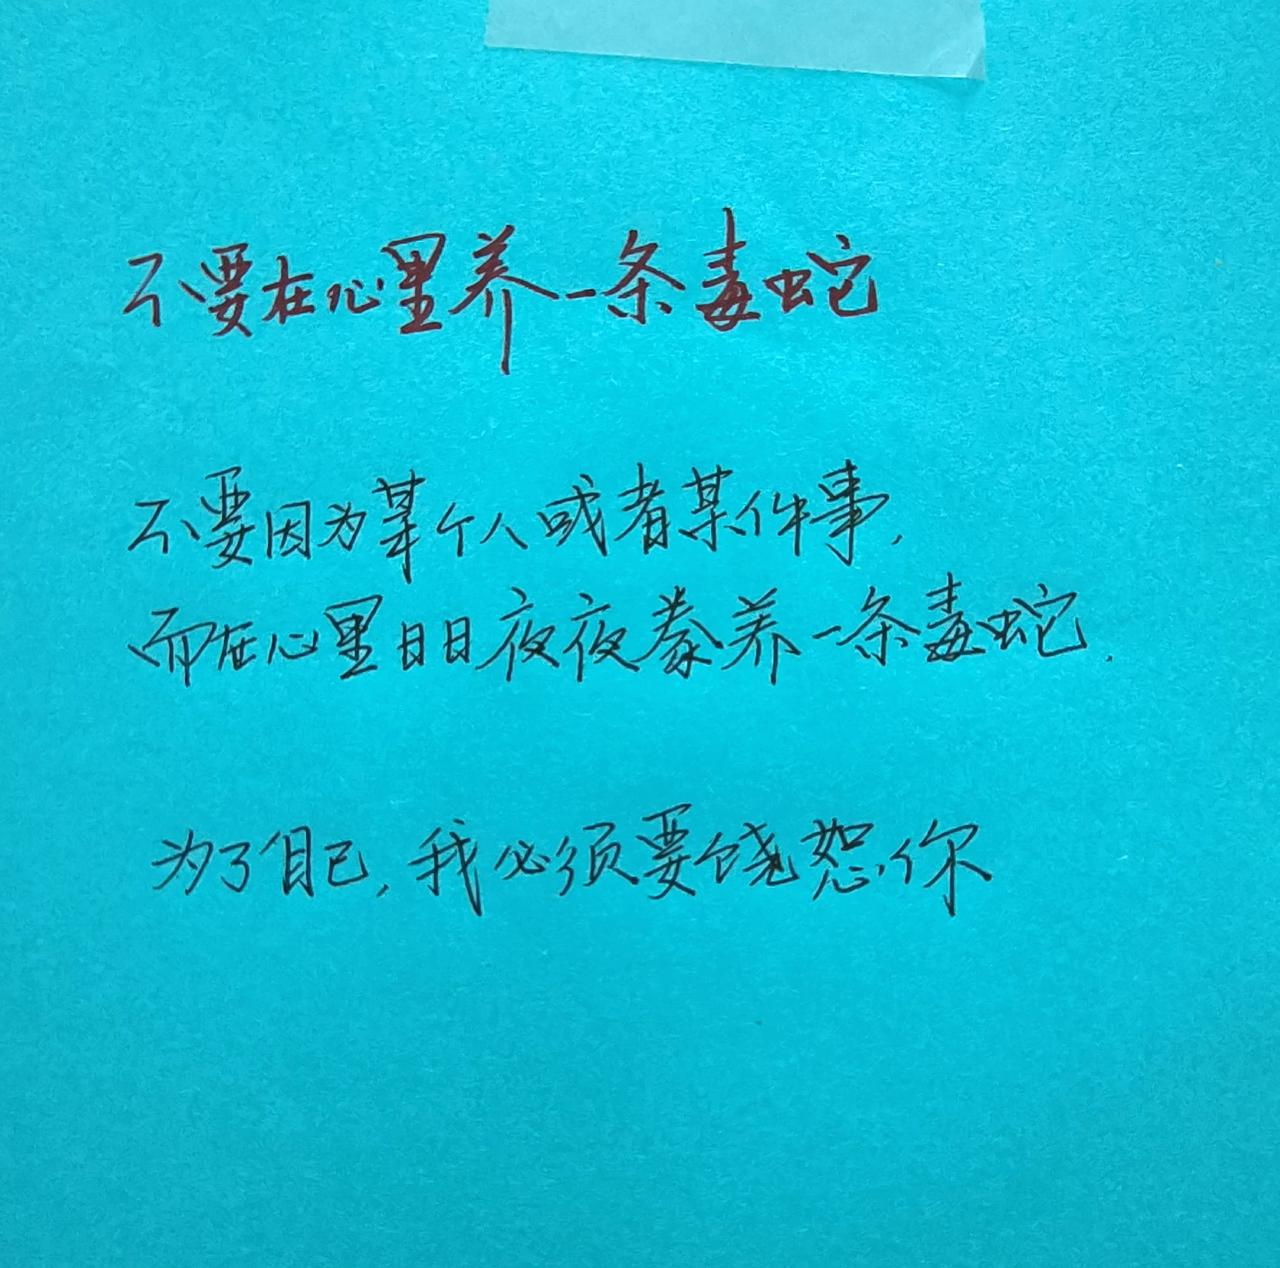 不要在心里养一条毒蛇
不要因为某个人或者某件事,
而在心里日日夜夜豢养一条毒蛇.
为了自己,我必须要饶恕你